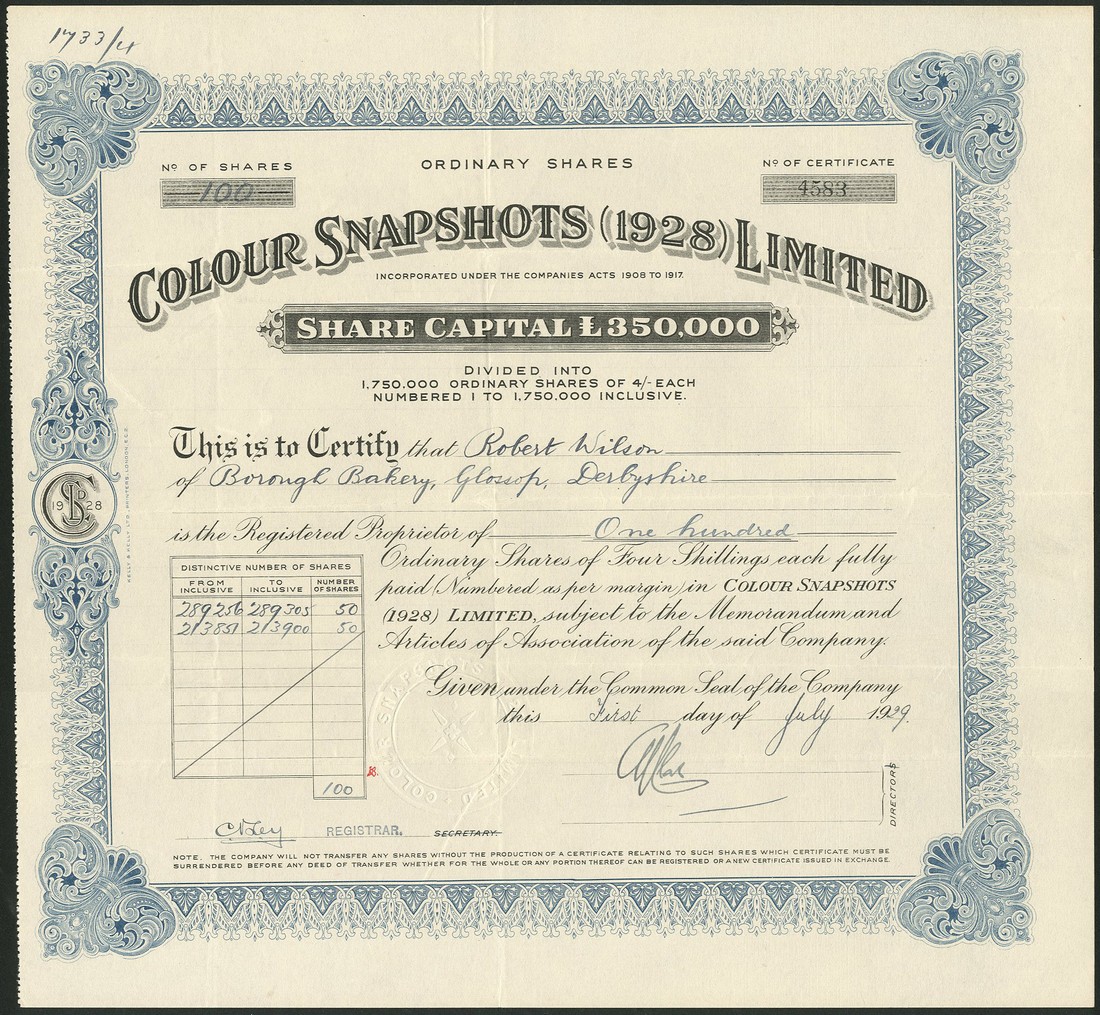 1733/4
Nº OF SHARES
ORDINARY SHARES
Nº OF CERTIFICATE
100
4583
COLOUR SNAPSHOTS (1928) LIMITED
INCORPORATED UNDER THE COMPANIES ACTS 1908 TO 1917.
SHARE CAPITAL £350,000
DIVIDED INTO
1,750,000 ORDINARY SHARES OF 4/- EACH
NUMBERED 1 TO 1,750,000 INCLUSIVE.
This is to Certify that Robert Wilson
of Borough Bakery, Glossop, Derbyshire
is the Registered Proprietor of One hundred
Ordinary Shares of Four Shillings each fully
paid (Numbered as per margin) in COLOUR SNAPSHOTS
(1928) LIMITED, subject to the Memorandum and
Articles of Association of the said Company.
DISTINCTIVE NUMBER OF SHARES
FROM INCLUSIVE TO INCLUSIVE NUMBER OF SHARES
289256 289305 50
213851 213900 50
100
Given under the Common Seal of the Company
this First day of July 1929.
DIRECTORS
REGISTRAR. SECRETARY.
NOTE. THE COMPANY WILL NOT TRANSFER ANY SHARES WITHOUT THE PRODUCTION OF A CERTIFICATE RELATING TO SUCH SHARES WHICH CERTIFICATE MUST BE
SURRENDERED BEFORE ANY DEED OF TRANSFER WHETHER FOR THE WHOLE OR ANY PORTION THEREOF CAN BE REGISTERED OR A NEW CERTIFICATE ISSUED IN EXCHANGE.
1928
KELLY & KELLY LTD., PRINTERS, LONDON E.C.2.